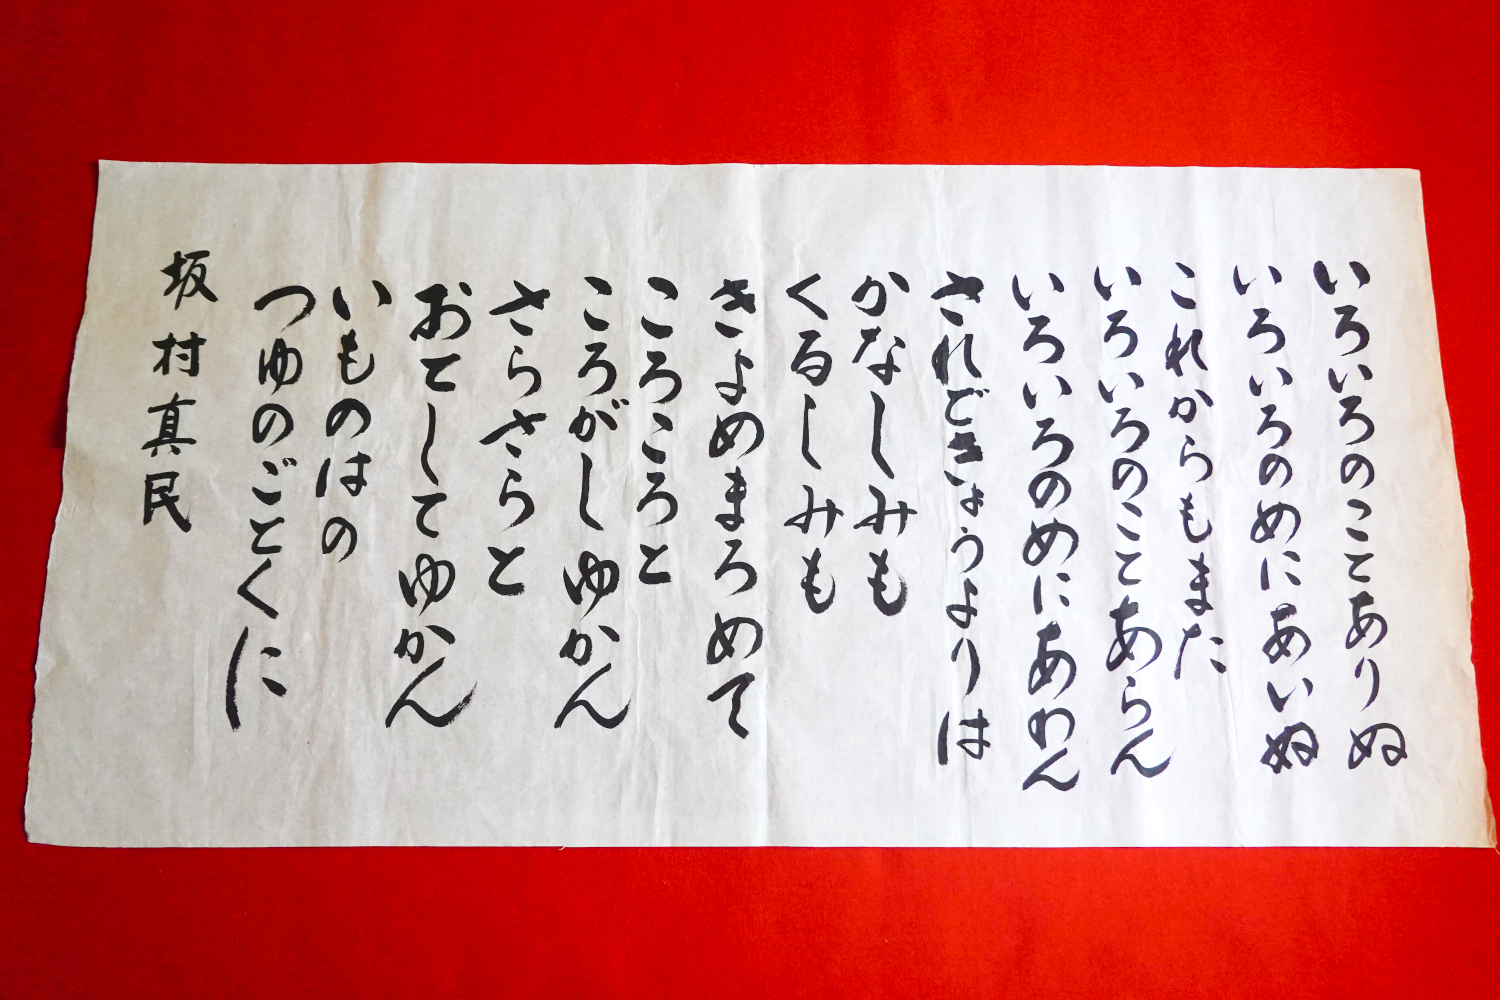 いろいろのことありぬ
いろいろのめにあいぬ
これからもまた
いろいろのことあらん
いろいろのめにあわん
されどきょうよりは
かなしみも
くるしみも
きよめまろめて
ころころと
ころがしゆかん
さらさらと
おとしてゆかん
いものはの
つゆのごとくに
坂村真民